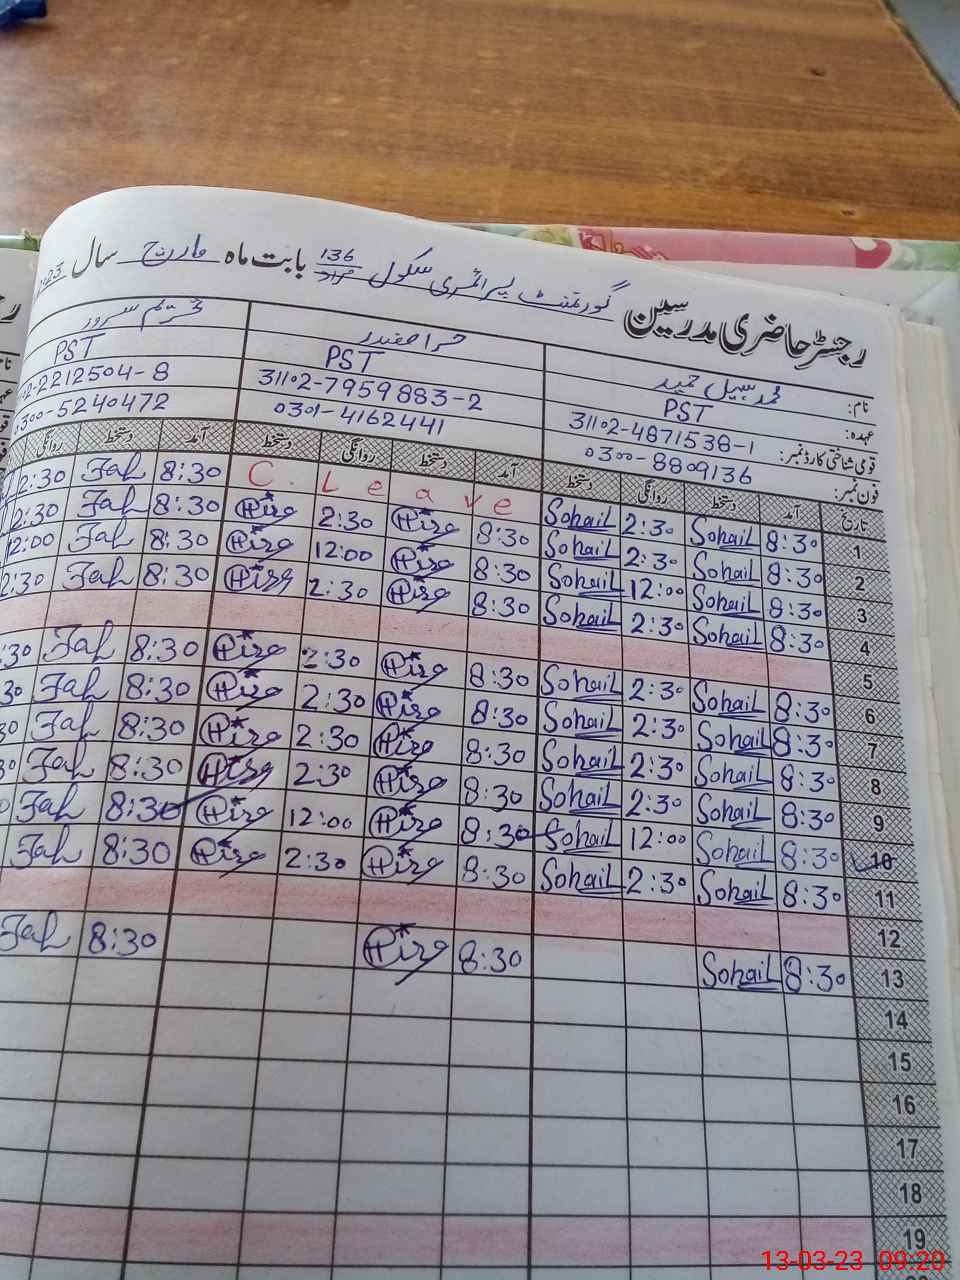 رجسٹر حاضری مدرسین گورنمنٹ پرائمری سکول 136 مراد بابت ماہ مارچ سال
نام: محمد سہیل حمید حرا صفدر تحریم سرور
عہدہ: PST PST PST
قومی شناختی کارڈ نمبر: 31102-4871538-1 31102-7959883-2 2-2212504-8
فون نمبر: 0300-8809136 0301-4162441 300-5240472
تاریخ آمد دستخط روانگی دستخط آمد دستخط روانگی دستخط آمد دستخط روانگی
1 8:30 Sohail 2:30 Sohail C. Leave 8:30 Fah 2:30
2 8:30 Sohail 2:30 Sohail 8:30 Hira 2:30 Hira 8:30 Fah 2:30
3 8:30 Sohail 12:00 Sohail 8:30 Hira 12:00 Hira 8:30 Fah 12:00
4 8:30 Sohail 2:30 Sohail 8:30 Hira 2:30 Hira 8:30 Fah 2:30
5
6 8:30 Sohail 2:30 Sohail 8:30 Hira 2:30 Hira 8:30 Fah :30
7 8:30 Sohail 2:30 Sohail 8:30 Hira 2:30 Hira 8:30 Fah 30
8 8:30 Sohail 2:30 Sohail 8:30 Hira 2:30 Hira 8:30 Fah 30
9 8:30 Sohail 2:30 Sohail 8:30 Hira 2:30 Hira 8:30 Fah
10 8:30 Sohail 12:00 Sohail 8:30 Hira 12:00 Hira 8:30 Fah
11 8:30 Sohail 2:30 Sohail 8:30 Hira 2:30 Hira 8:30 Fah
12
13 8:30 Sohail 8:30 Hira 8:30 Fah
14
15
16
17
18
19
13-03-23 09:20